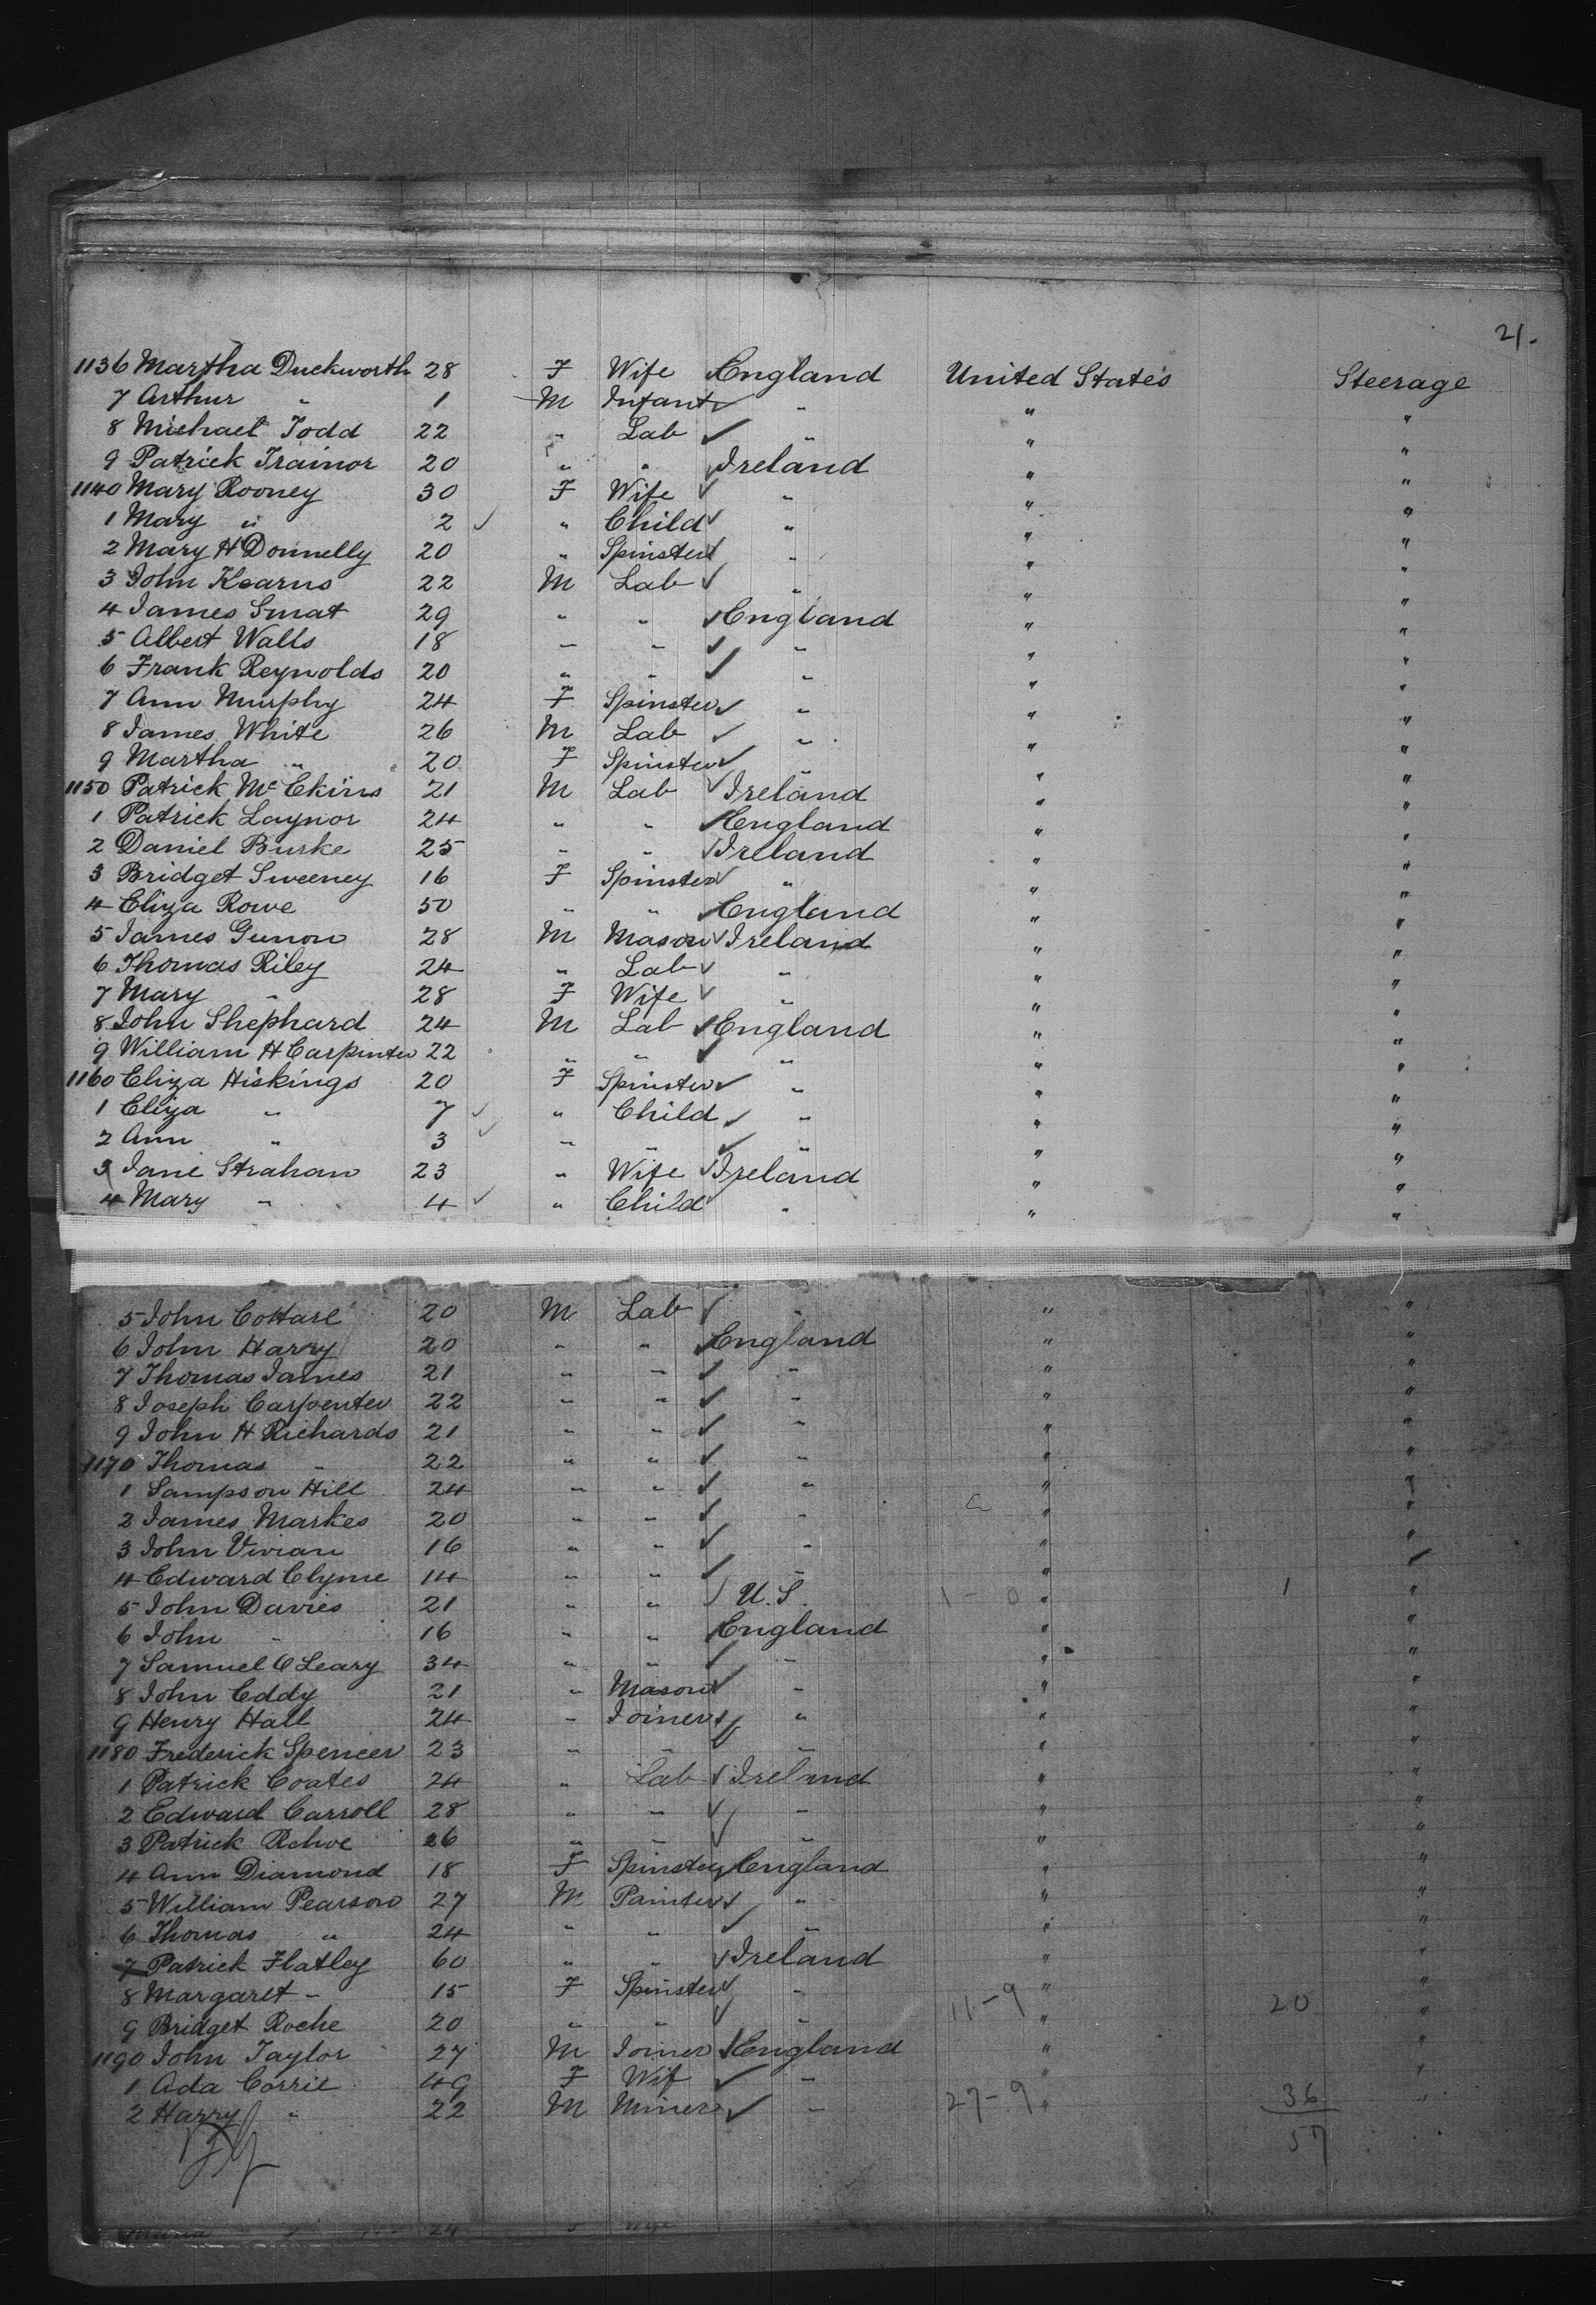 21.
1136 Martha Duckworth 28 F Wife England United States Steerage
7 Arthur " 1 M Infant " " "
8 Michael Todd 22 " Lab " " "
9 Patrick Trainor 20 " " Ireland " "
1140 Mary Rooney 30 F Wife " " "
1 Mary " 2 " Child " " "
2 Mary H Donnelly 20 " Spinster " " "
3 John Kearns 22 M Lab " " "
4 James Smat 29 " " England " "
5 Albert Walls 18 " " " " "
6 Frank Reynolds 20 " " " " "
7 Ann Murphy 24 F Spinster " " "
8 James White 26 M Lab " " "
9 Martha " 20 F Spinster " " "
1150 Patrick Mc Ekins 21 M Lab Ireland " "
1 Patrick Laynor 24 " " England " "
2 Daniel Burke 25 " " Ireland " "
3 Bridget Sweeney 16 F Spinster " " "
4 Eliza Rowe 50 " " England " "
5 James Gunon 28 M Mason Ireland " "
6 Thomas Riley 24 " Lab " " "
7 Mary " 28 F Wife " " "
8 John Shephard 24 M Lab England " "
9 William H Carpinter 22 " " " " "
1160 Eliza Hiskings 20 F Spinster " " "
1 Eliza " 7 " Child " " "
2 Ann " 3 " " " " "
3 Jane Strahan 23 " Wife Ireland " "
4 Mary " 4 " Child " " "
5 John Cottare 20 M Lab " " "
6 John Harry 20 " " England " "
7 Thomas James 21 " " " " "
8 Joseph Carpenter 22 " " " " "
9 John H Richards 21 " " " " "
1170 Thomas " 22 " " " " "
1 Sampson Hill 24 " " " " "
2 James Markes 20 " " " " "
3 John Vivian 16 " " " " "
4 Edward Clyme 14 " " " "
5 John Davies 21 " " U.S. 1-0 " 1 "
6 John " 16 " " England " "
7 Samuel O Leary 34 " " " " "
8 John Eddy 21 " Mason " " "
9 Henry Hall 24 " Joiner " " "
1180 Frederick Spencer 23 " " " " "
1 Patrick Coates 24 " Lab Ireland " "
2 Edward Carroll 28 " " " " "
3 Patrick Rehoe 26 " " " " "
4 Ann Diamond 18 F Spinster England " "
5 William Pearson 27 M Painter " " "
6 Thomas " 24 " " " " "
7 Patrick Flatley 60 " " Ireland " "
8 Margaret " 15 F Spinster " 11-9 " 20 "
9 Bridget Roche 20 " " " " "
1190 John Taylor 27 M Joiner England " "
1 Ada Corrie 49 F Wif " " "
2 Harry " 22 M Miner " 27-9 " 36 "
57
24 Wife